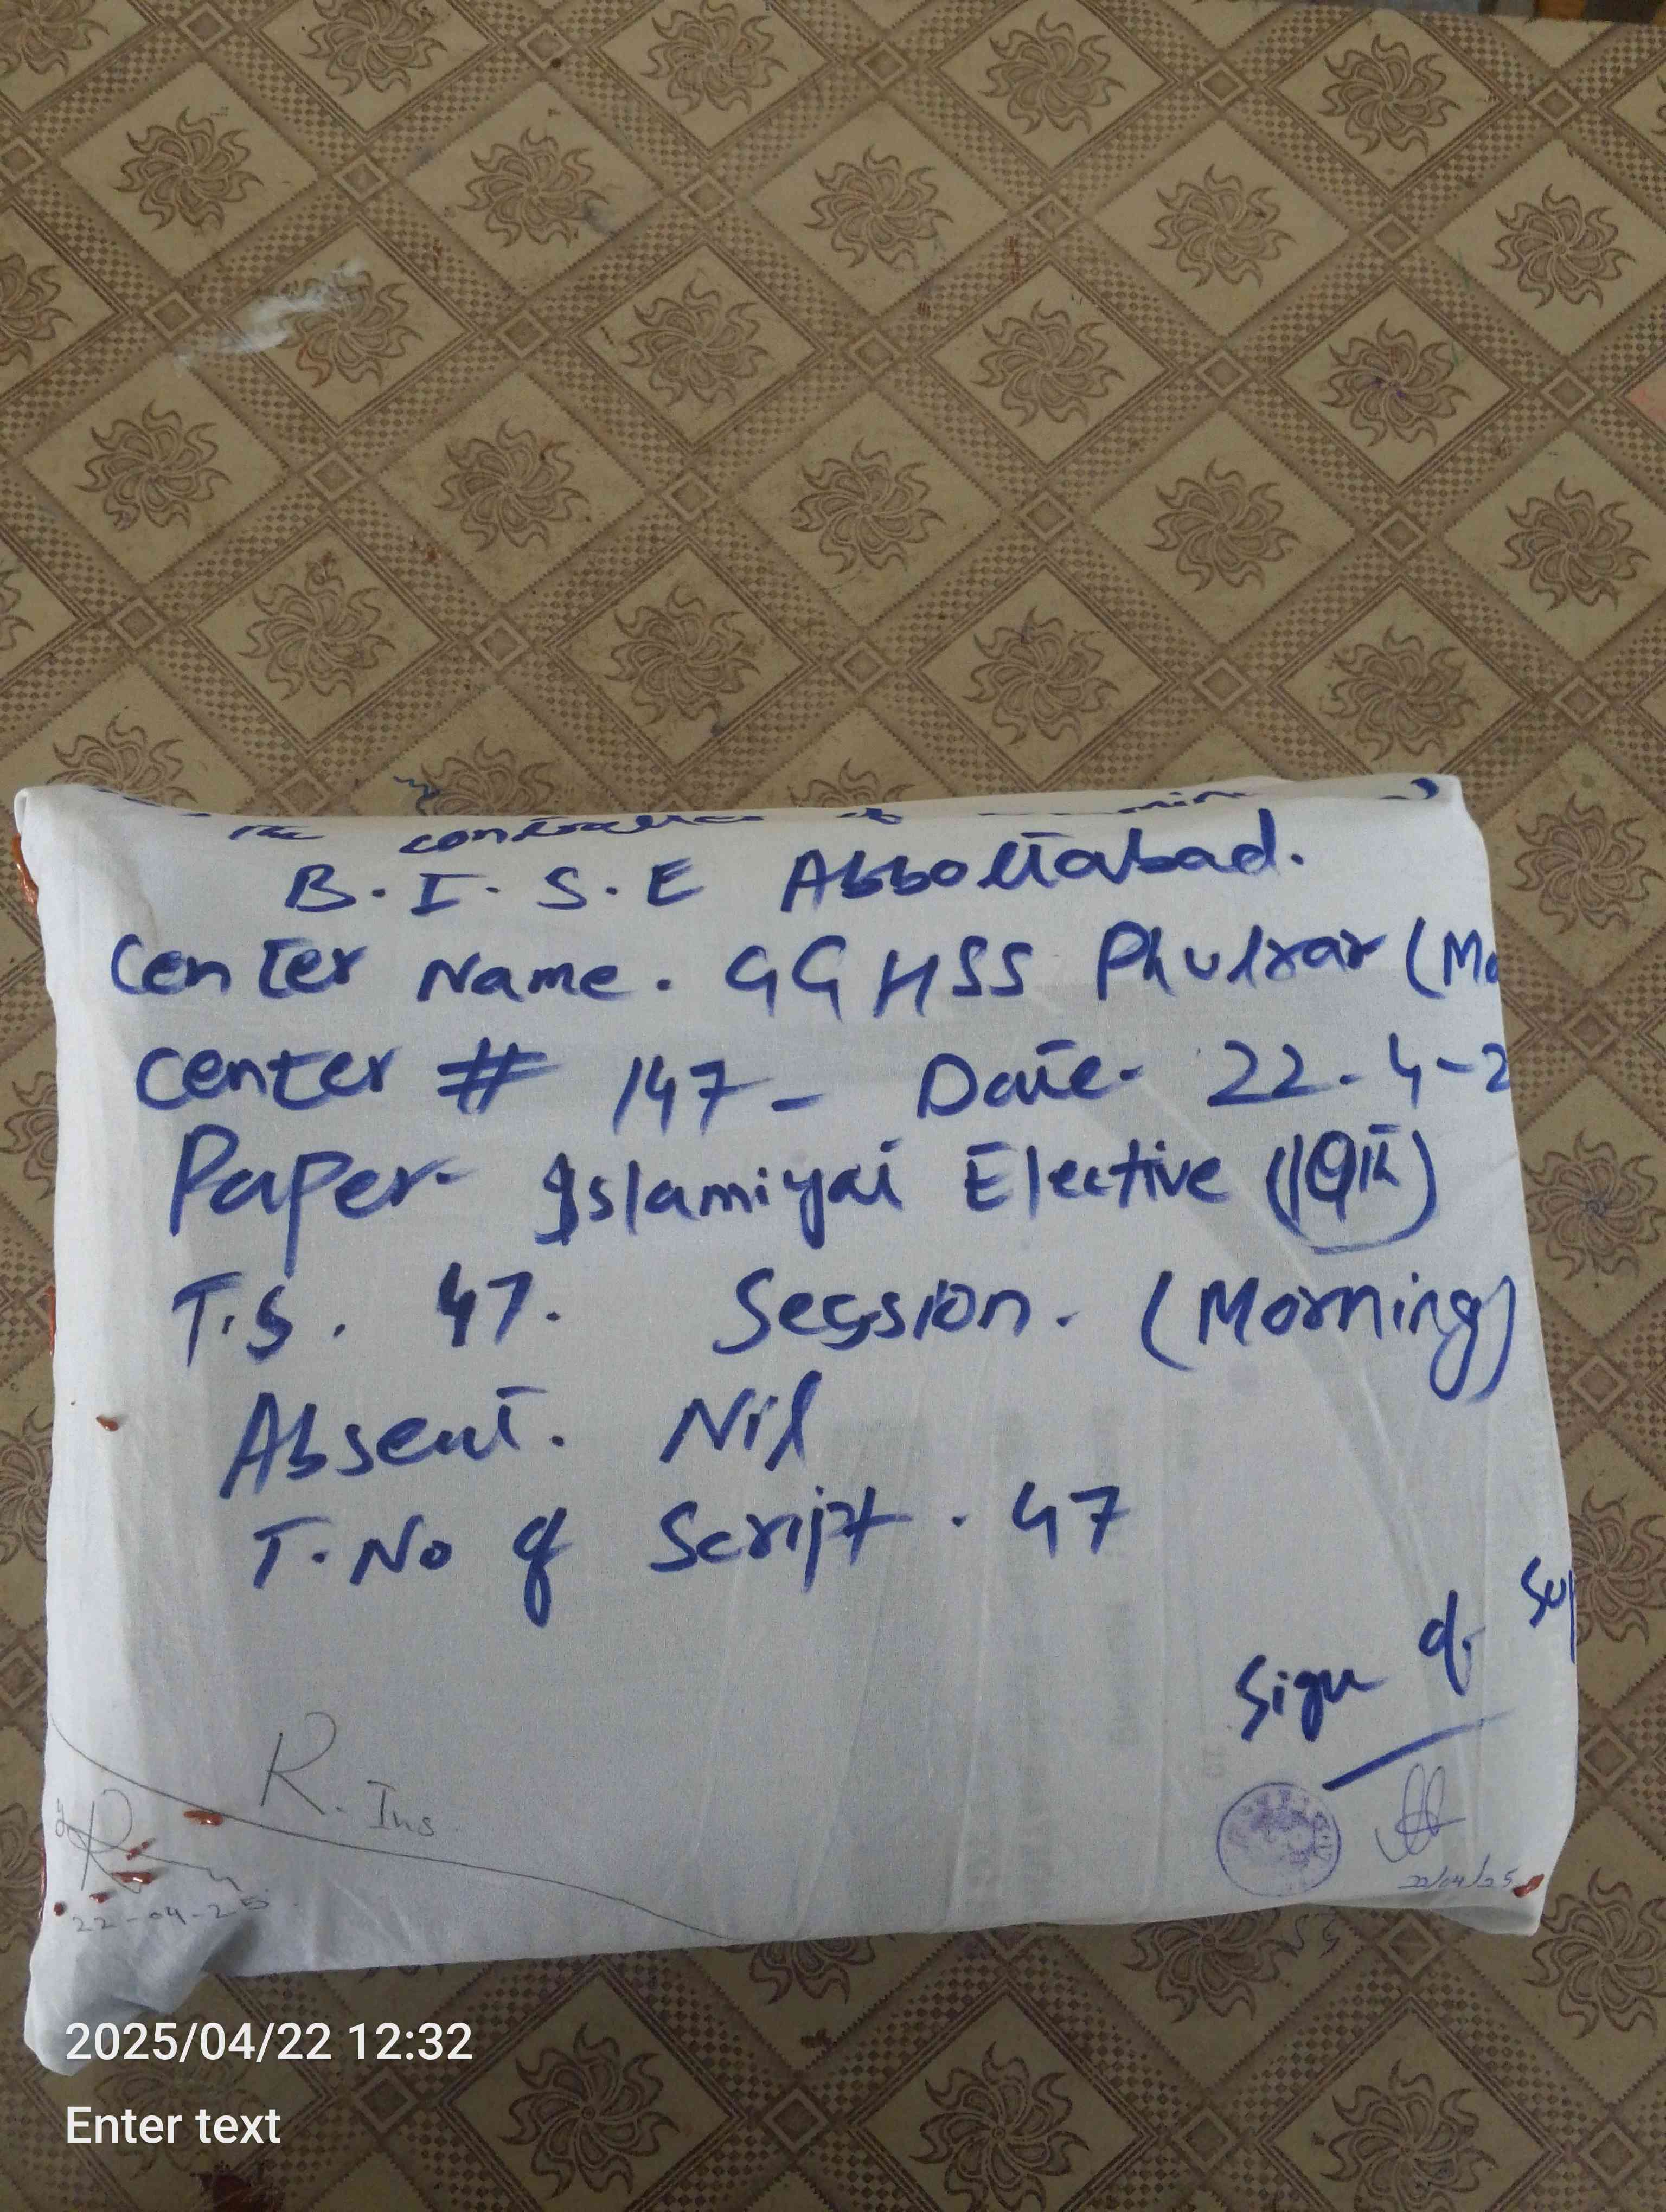 The controller of
B.I.S.E Abbottabad.
Center Name. GGHSS Phulrar (Mo
Center # 147- Date- 22-4-2
Paper- Islamiyat Elective (10th)
T.S. 47. Session. (Morning)
Absent. Nil
T. No of Script. 47
Sign of Sup
R. Ins.
22-04-25
22/04/25
2025/04/22 12:32
Enter text